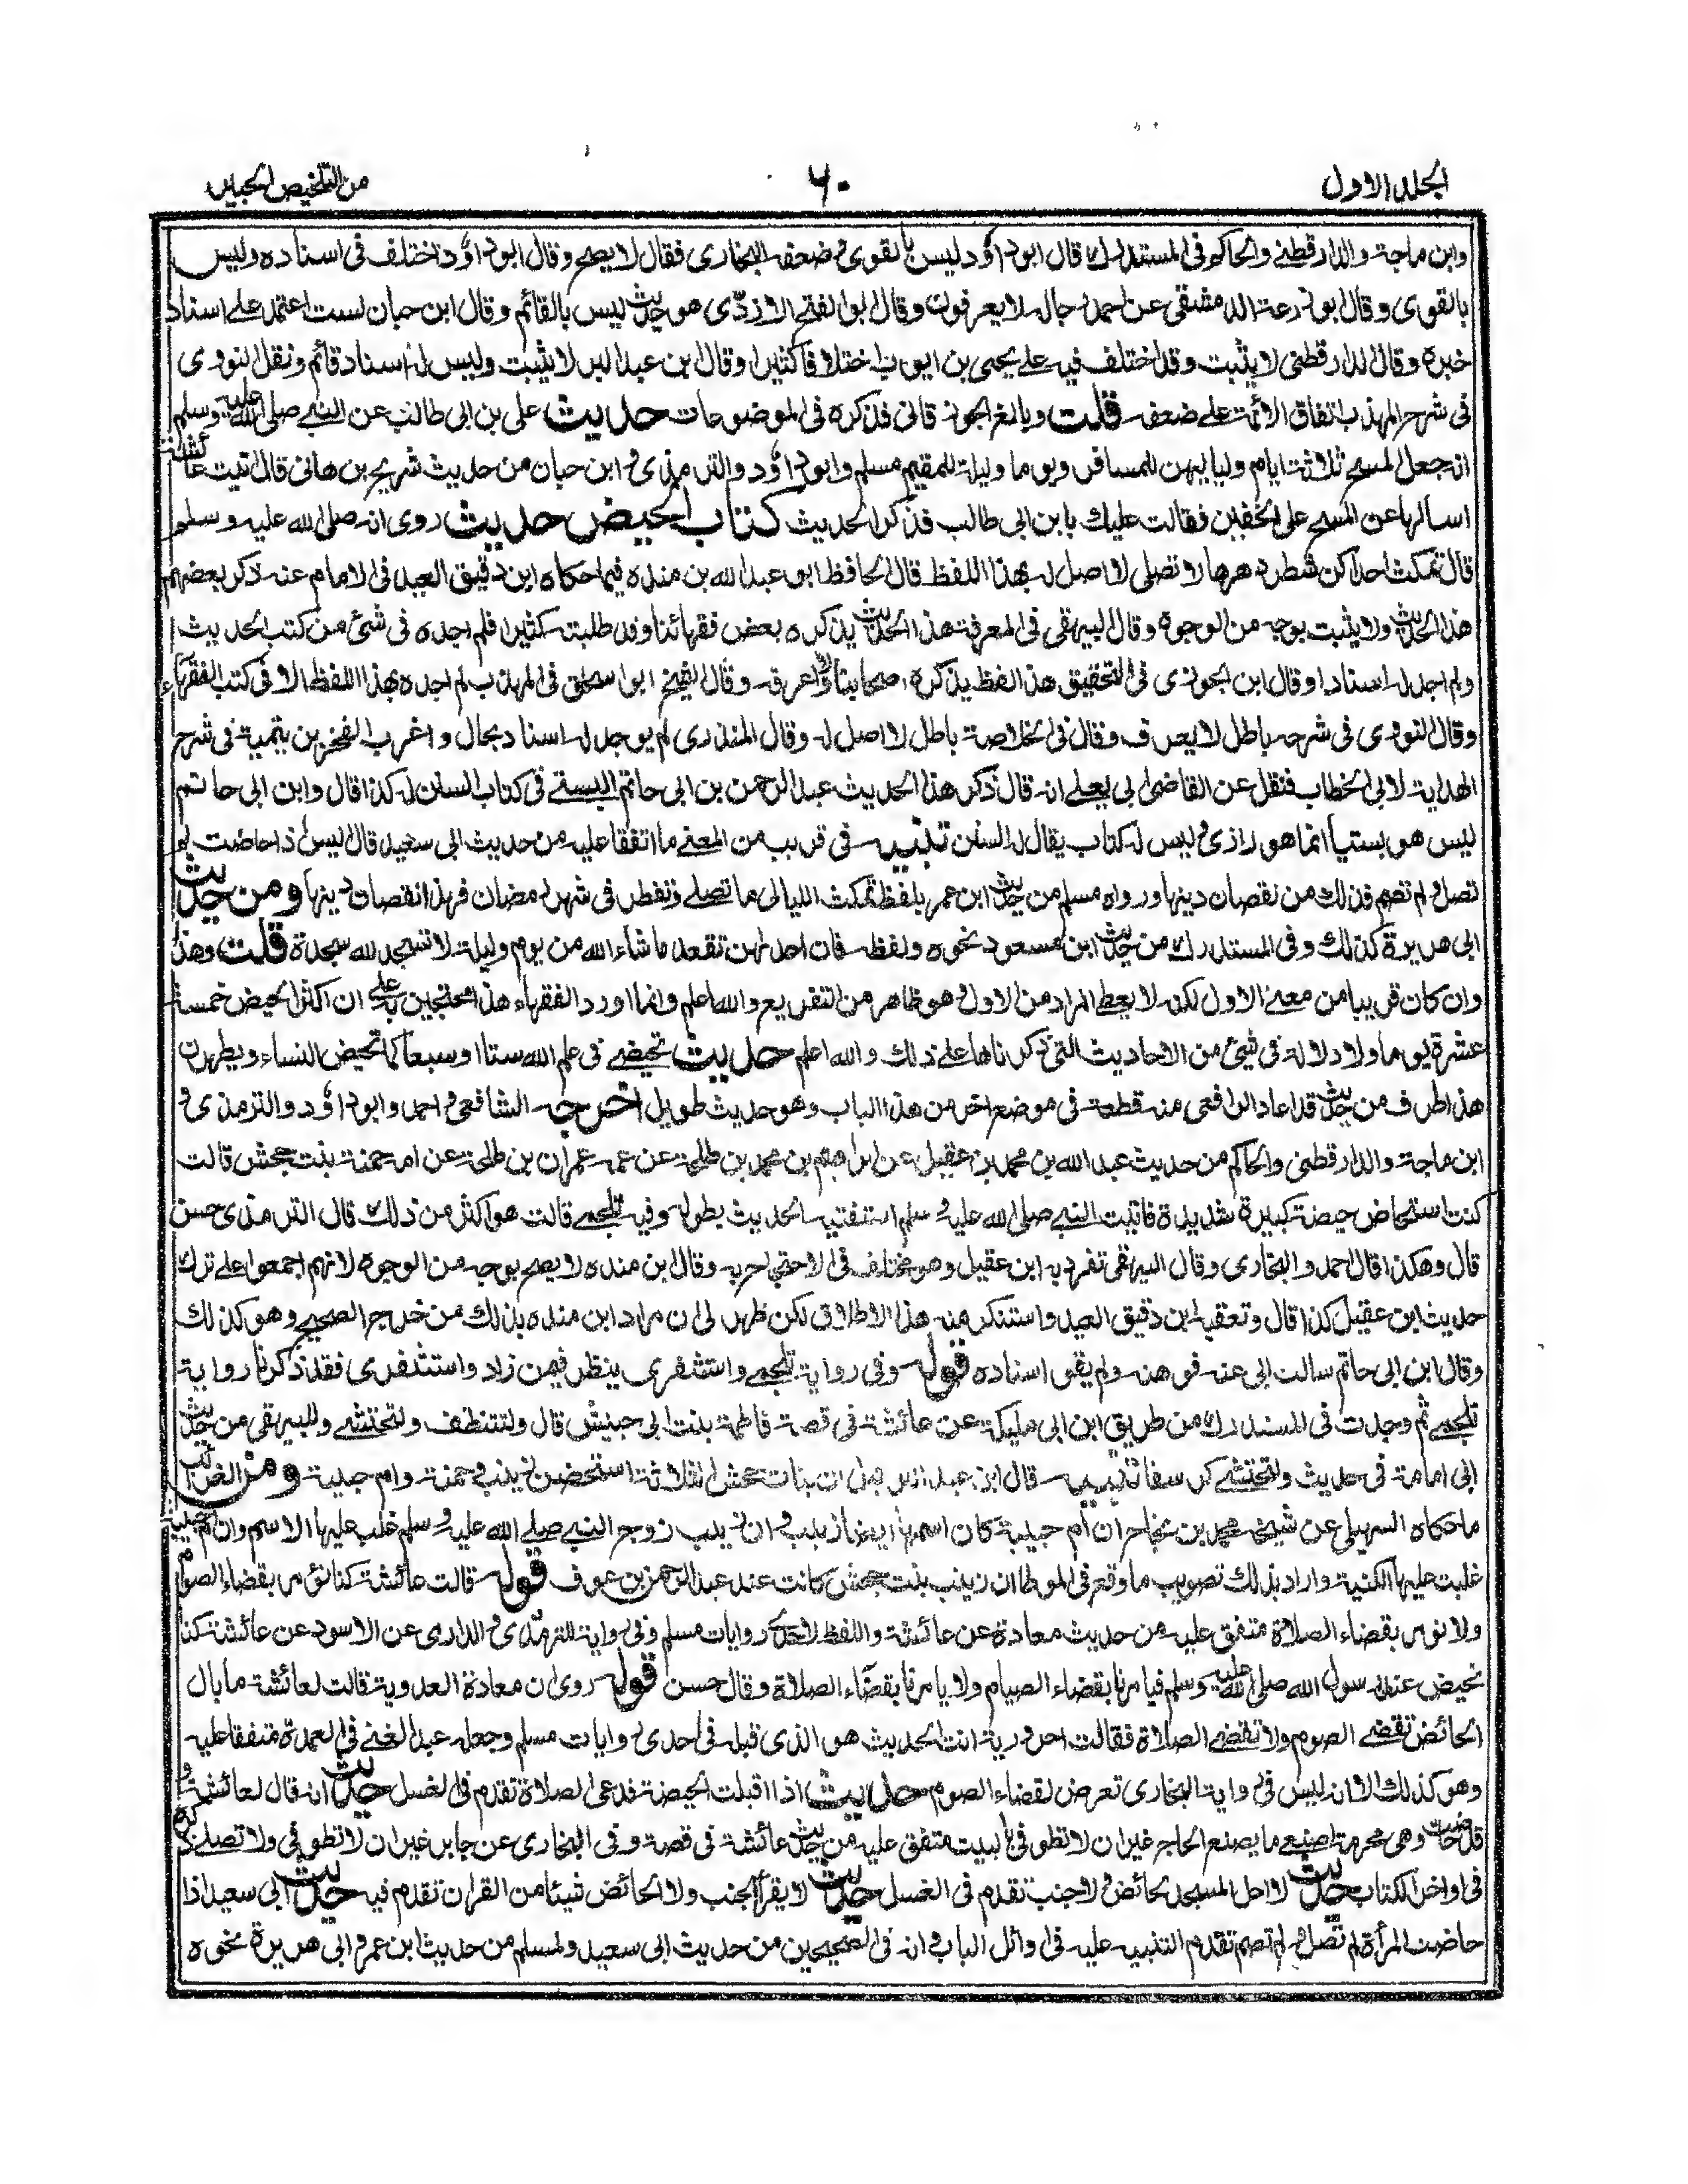 الجلد الاول
٦٠
من التلخيص الحبير
وابن ماجة والدارقطني والحاكم في المستدرك قال ابوداؤد ليس بالقوي وضعفه البخاري فقال لا يصح وقال ابوداؤد اختلف في اسناده وليس
بالقوي وقال ابو زرعة الدمشقي عن احمد رجاله لا يعرفون وقال ابو الفتح الازدي هو حديث ليس بالقائم وقال ابن حبان لست اعتمد على اسناد
خبره وقال الدارقطني لا يثبت وقد اختلف فيه على يحيى بن ايوب اختلافا كثيرا وقال ابن عبد البر لا يثبت وليس له اسناد قائم ونقل النووي
في شرح المهذب اتفاق الائمة على ضعفه قلت وبالغ الجوزقاني فذكره في الموضوعات حديث علي بن ابي طالب عن النبي صلى الله عليه وسلم
انه جعل المسح ثلاثة ايام ولياليهن للمسافر ويوما وليلة للمقيم مسلم وابوداؤد والترمذي وابن حبان من حديث شريح بن هانئ قال اتيت عائشة
اسالها عن المسح على الخفين فقالت عليك بابن ابي طالب فذكر الحديث كتاب الحيض حديث روى انه صلى الله عليه وسلم
قال تمكث احداكن شطر دهرها لا تصلي لا اصل له بهذا اللفظ قال الحافظ ابو عبد الله بن منده فيما حكاه ابن دقيق العيد في الامام عنه ذكر بعضهم
هذا الحديث ولا يثبت بوجه من الوجوه وقال البيهقي في المعرفة هذا الحديث يذكره بعض فقهائنا وقد طلبته كثيرا فلم اجده في شئ من كتب الحديث
ولم اجد له اسنادا وقال ابن الجوزي في التحقيق هذا لفظ يذكره اصحابنا ولا اعرفه وقال الشيخ ابو اسحاق في المهذب لم اجده بهذا اللفظ الا في كتب الفقهاء
وقال النووي في شرحه باطل لا يعرف وقال في الخلاصة باطل لا اصل له وقال المنذري لم يوجد له اسناد بحال واغرب الفخر بن تيمية في شرح
الهداية لابي الخطاب فنقل عن القاضي ابي يعلى انه قال ذكر هذا الحديث عبد الرحمن بن ابي حاتم البستي في كتاب السنن له كذا قال وابن ابي حاتم
ليس هو بستيا انما هو رازي وليس له كتاب يقال له السنن تنبيه في قريب من المعنى ما اتفقا عليه من حديث ابي سعيد قال اليس اذا حاضت لم
تصل ولم تصم فذلك من نقصان دينها ورواه مسلم من حديث ابن عمر بلفظ تمكث الليالي ما تصلي وتفطر في شهر رمضان فهذا نقصان دينها ومن حديث
ابي هريرة كذلك وفي المستدرك من حديث ابن مسعود نحوه ولفظه فان احداهن تقعد ما شاء الله من يوم وليلة لا تسجد لله سجدة قلت وهذا
وان كان قريبا من معنى الاول لكنه لا يعطي المراد من الاول وهو ظاهر من التفريع والله اعلم وانما اورد الفقهاء هذا محتجين به على ان اكثر الحيض خمسة
عشرة يوما ولا دلالة في شئ من الاحاديث التي ذكرناها على ذلك والله اعلم حديث تحيضي في علم الله ستا او سبعا كما تحيض النساء ويطهرن
هذا طرف من حديث قد اعاد الرافعي منه قطعة في موضع اخر من هذا الباب وهو حديث طويل اخرجه الشافعي واحمد وابوداؤد والترمذي و
ابن ماجة والدارقطني والحاكم من حديث عبد الله بن محمد بن عقيل عن ابراهيم بن محمد بن طلحة عن عمه عمران بن طلحة عن امه حمنة بنت جحش قالت
كنت استحاض حيضة كبيرة شديدة فاتيت النبي صلى الله عليه وسلم استفتيه الحديث بطوله وفيه تلجمي قالت هو اكثر من ذلك قال الترمذي حسن
قال وهكذا قال احمد والبخاري وقال البيهقي تفرد به ابن عقيل وهو مختلف في الاحتجاج به وقال ابن منده لا يصح بوجه من الوجوه لانهم اجمعوا على ترك
حديث ابن عقيل كذا قال وتعقبه ابن دقيق العيد واستنكر منه هذا الاطلاق لكن ظهر لي ان مراد ابن منده بذلك من خرج الصحيح وهو كذلك
وقال ابن ابي حاتم سالت ابي عنه فوهنه ولم يقو اسناده قوله وفي رواية تلجمي واستثفري ينظر فيمن زاد واستثفري فقد ذكرنا رواية
تلجمي ثم وجدت في المستدرك من طريق ابن ابي مليكة عن عائشة في قصة فاطمة بنت ابي حبيش قال ولتتنظف ولتحتشي وللبيهقي من حديث
ابي امامة في حديث ولتحتشي كرسفا تنبيه قال ابن عبد البر قيل ان بنات جحش الثلاثة استحضن زينب وحمنة وام حبيبة ومن الغرائب
ما حكاه السهيلي عن شيخه محمد بن نجاح ان أم حبيبة كان اسمها ايضا زينب وان زينب زوج النبي صلى الله عليه وسلم غلب عليها الاسم وان ام حبيبة
غلبت عليها الكنية واراد بذلك تصويب ما وقع في الموطا ان زينب بنت جحش كانت عند عبد الرحمن بن عوف قوله قالت عائشة كنا نؤمر بقضاء الصوم
ولا نؤمر بقضاء الصلاة متفق عليه من حديث معاذة عن عائشة واللفظ لاحدى روايات مسلم وفي رواية للترمذي والدارمي عن الاسود عن عائشة كنا
نحيض عند رسول الله صلى الله عليه وسلم فيامرنا بقضاء الصيام ولا يامرنا بقضاء الصلاة وقال حسن قوله روى ان معاذة العدوية قالت لعائشة ما بال
الحائض تقضي الصوم ولا تقضي الصلاة فقالت احرورية انت الحديث هو الذي قبله في احدى روايات مسلم وجعله عبد الغني في العمدة متفقا عليه
وهو كذلك الا انه ليس في رواية البخاري تعرض لقضاء الصوم حديث اذا اقبلت الحيضة فدعي الصلاة تقدم في الغسل حديث انه قال لعائشة و
قد حاضت وهي محرمة اصنعي ما يصنع الحاج غير ان لا تطوفي بالبيت متفق عليه من حديث عائشة في قصة وفي البخاري عن جابر غير ان لا تطوفي ولا تصلي ذكره
في اواخر الكتاب حديث لا احل المسجد لحائض ولا جنب تقدم في الغسل حديث لا يقرأ الجنب ولا الحائض شيئا من القران تقدم فيه حديث ابي سعيد اذا
حاضت المرأة لم تصل ولم تصم تقدم التنبيه عليه في اوائل الباب وانه في الصحيحين من حديث ابي سعيد ولمسلم من حديث ابن عمر وابي هريرة نحوه